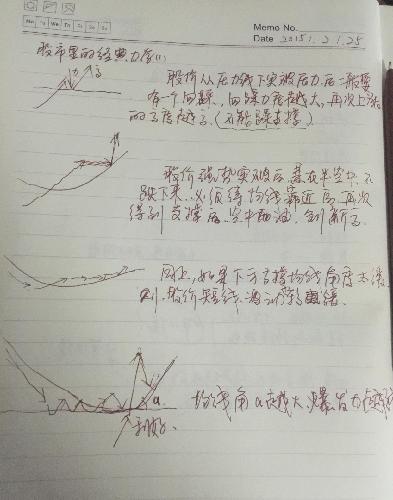 Memo No.
Mo Tu We Th Fr Sa Su
Date 2015.1.21.25
股市里的经典力学(1)
股价从压力线下突破压力后一般要
有一个回踩,回踩力度越大,再次上涨
的高度越高。(不能踩支撑)
股价强势突破后,悬在半空中,不
跌下来,必须待均线靠近后,再次
得到支撑后,空中加油,创新高。
同上,如果下方支撑均线角度太缓,
则股价短线
均线角a越大,爆发力越强
a
利好。